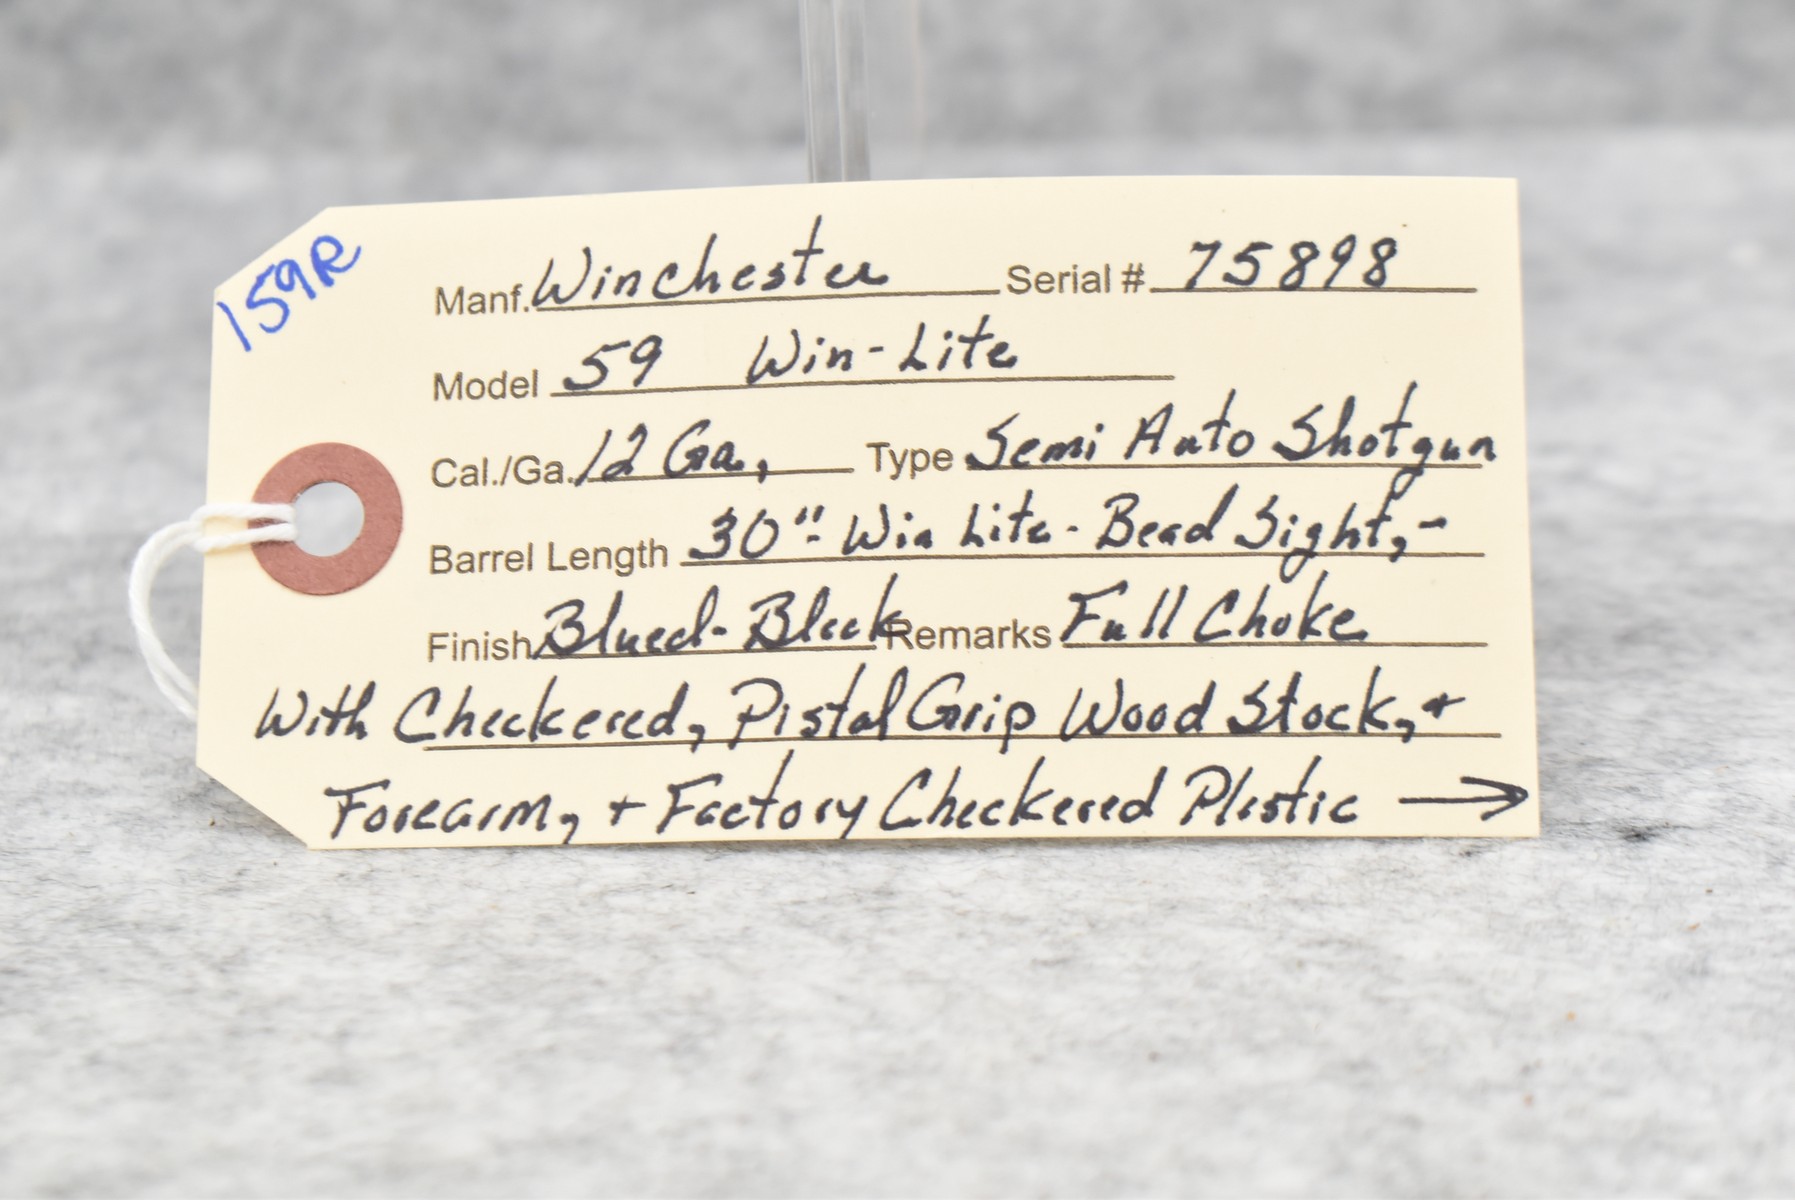 159R
Manf. Winchester Serial # 75898
Model 59 Win-Lite
Cal./Ga. 12 Ga, Type Semi Auto Shotgun
Barrel Length 30"- Win Lite - Bead Sight, -
Finish Blued-Black Remarks Full Choke
With Checkered, Pistol Grip Wood Stock, +
Forearm, + Factory Checkered Plastic →